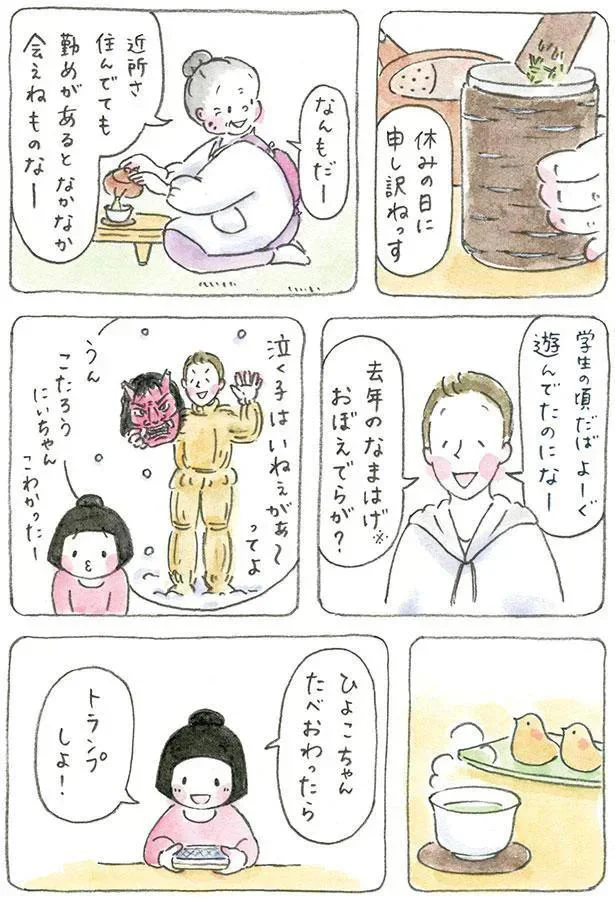 休みの日に
申し訳ねっす
なんもだー
近所さ
住んでても
勤めがあるとなかなか
会えねものなー
学生の頃だばよーぐ
遊んでたのになー
去年のなまはげ※
おぼえでらが？
泣く子はいねぇがぁ〜
ってよ
うん
こたろう
にいちゃん
こわかったー
ひよこちゃん
たべおわったら
トランプ
しよ！